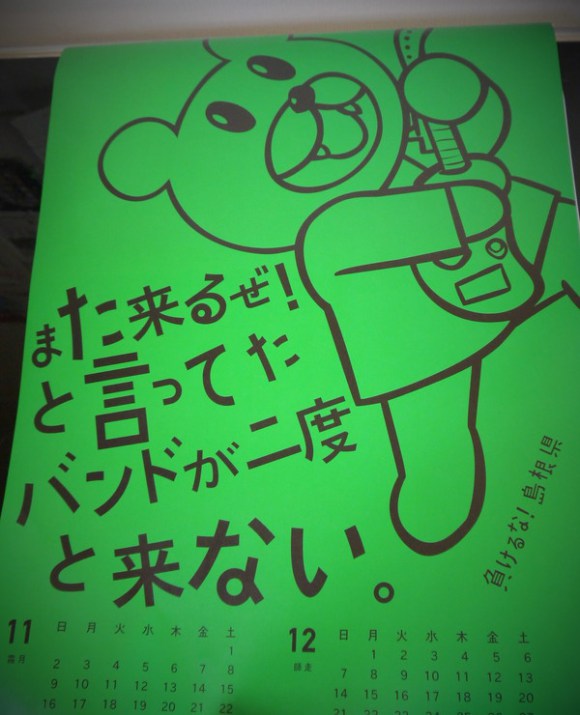 また来るぜ!
と言ってた
バンドが二度
と来ない。
負けるな!島根県
11
霜月
日 月 火 水 木 金 土
1
2 3 4 5 6 7 8
9 10 11 12 13 14 15
16 17 18 19 20 21 22
12
師走
日 月 火 水 木 金 土
1 2 3 4 5 6
7 8 9 10 11 12 13
14 15 16 17 18 19 20
21 22 23 24 25 26 27